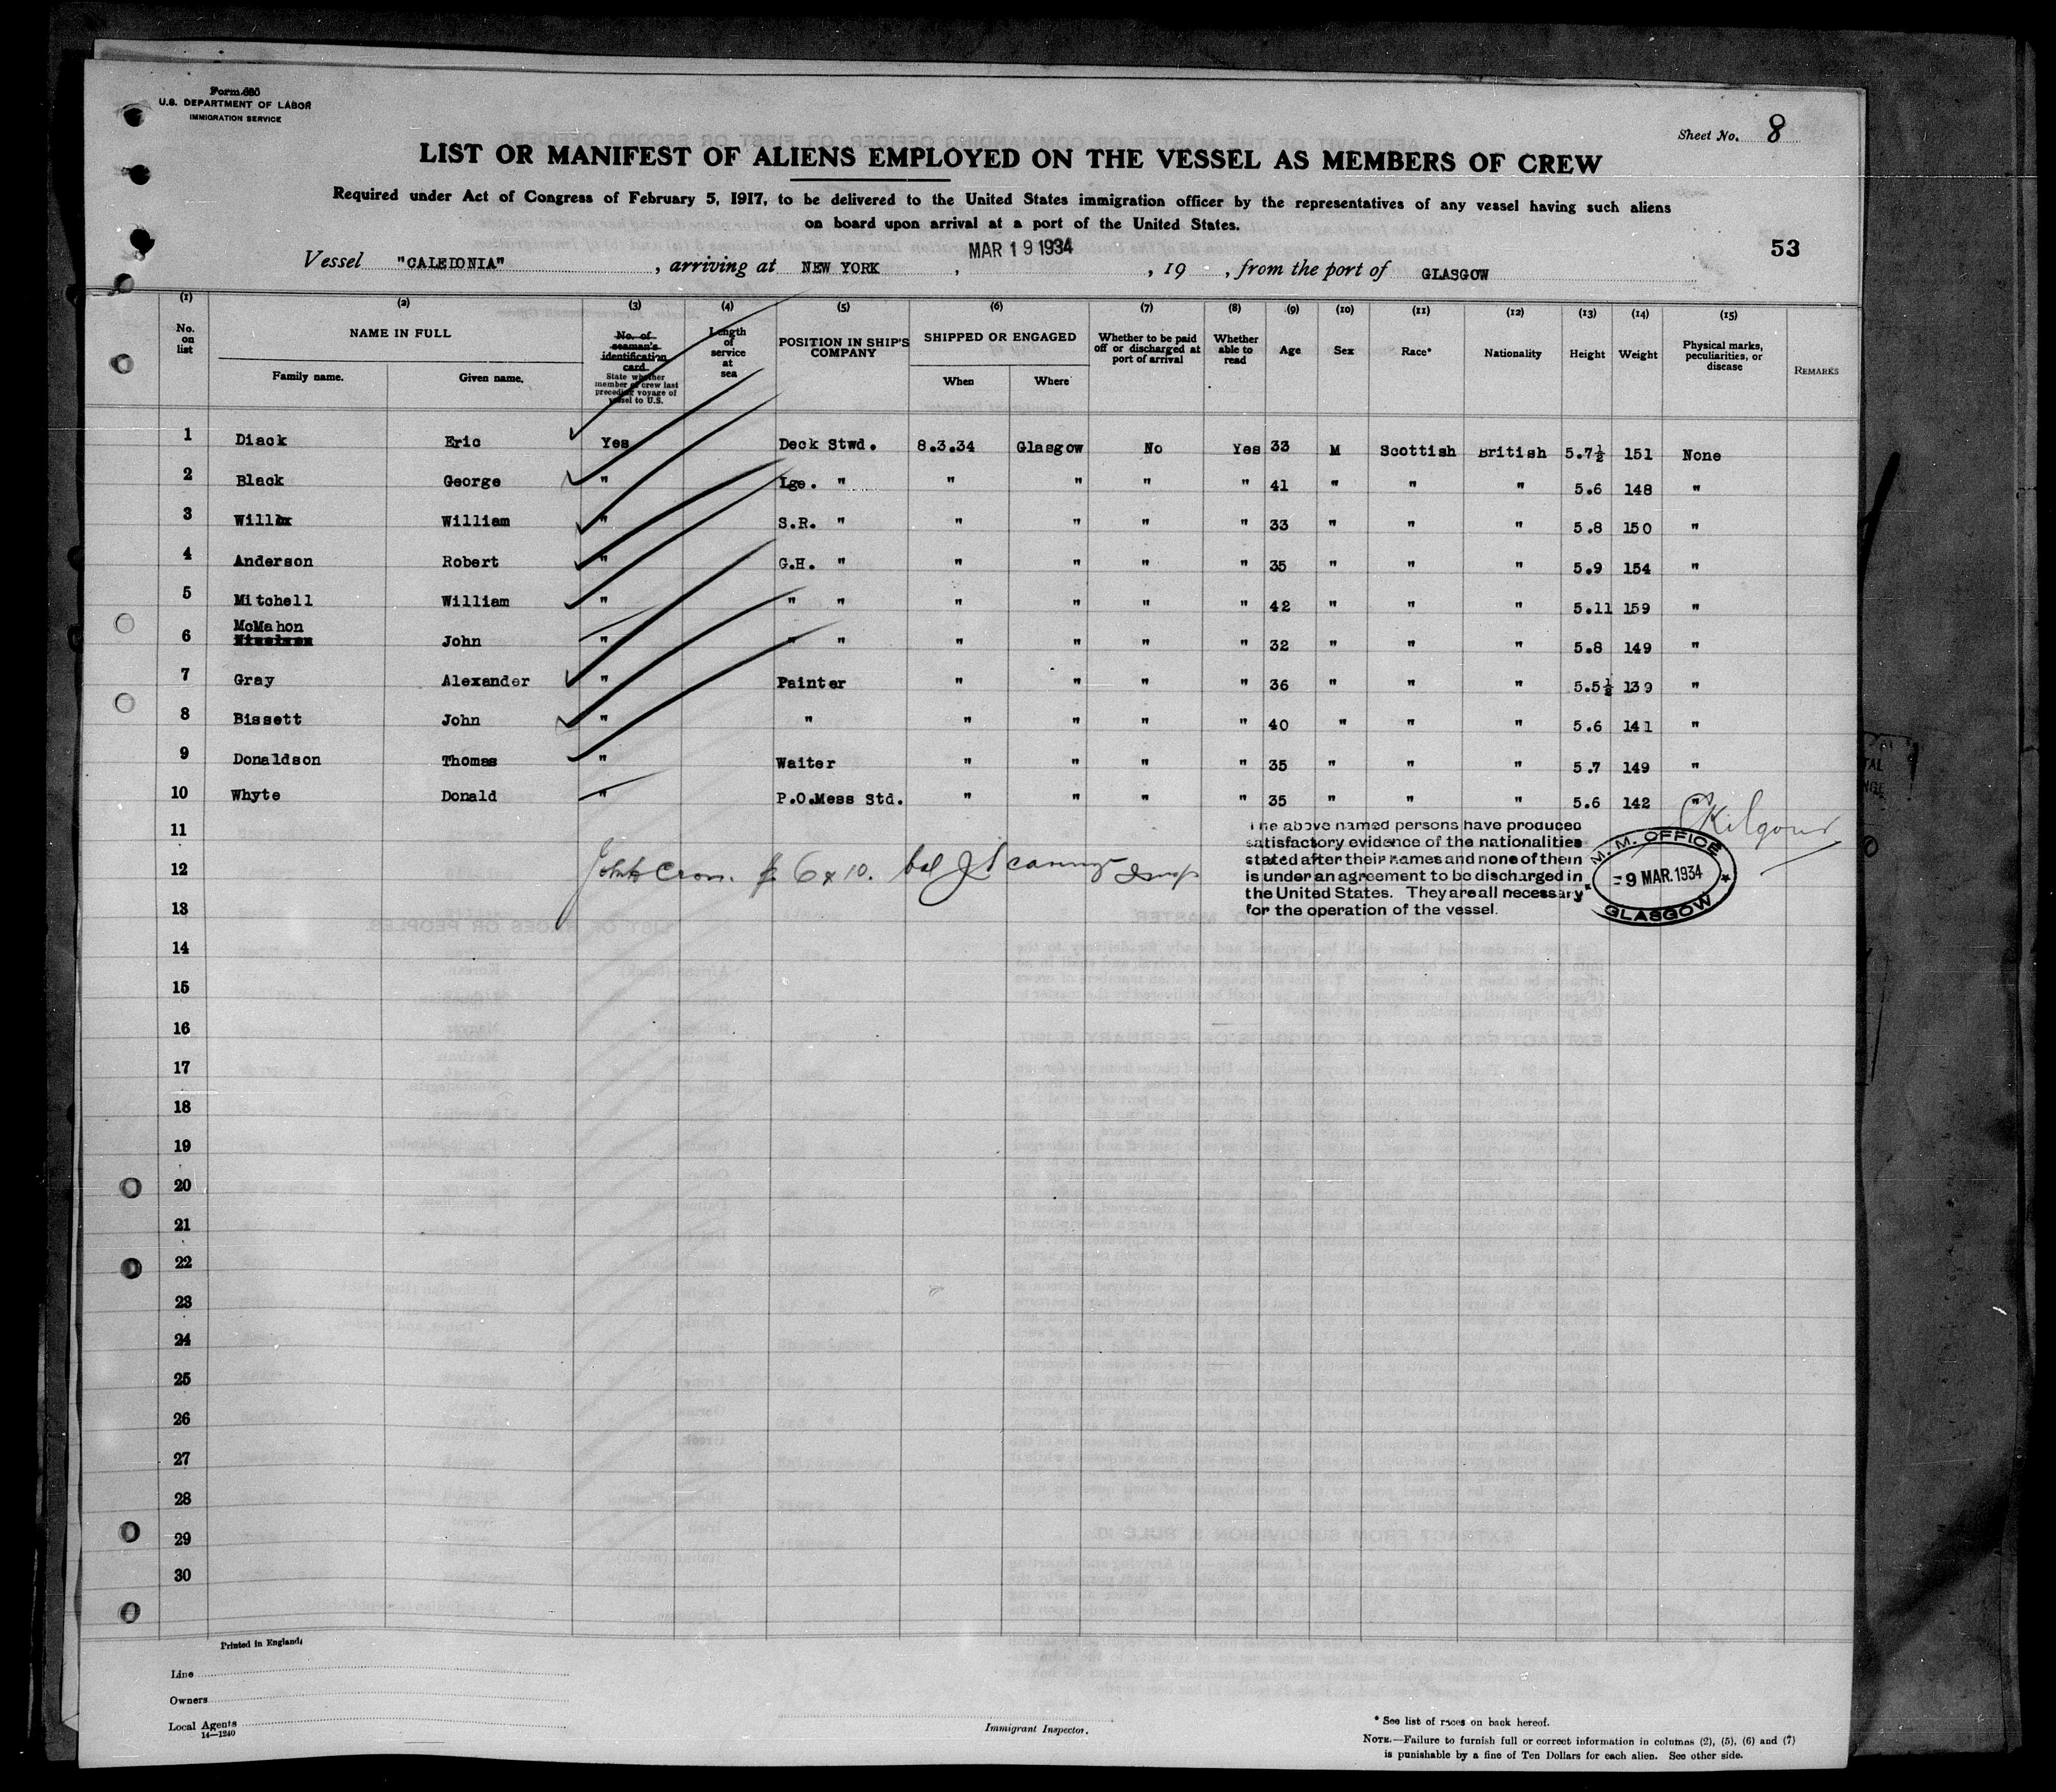 Form 680
U.S. DEPARTMENT OF LABOR
IMMIGRATION SERVICE
Sheet No. 8
LIST OR MANIFEST OF ALIENS EMPLOYED ON THE VESSEL AS MEMBERS OF CREW
Required under Act of Congress of February 5, 1917, to be delivered to the United States immigration officer by the representatives of any vessel having such aliens
on board upon arrival at a port of the United States.
53
Vessel "CALEDONIA", arriving at NEW YORK, MAR 19 1934, 19 , from the port of GLASGOW
(1) (2) (3) (4) (5) (6) (7) (8) (9) (10) (11) (12) (13) (14) (15)
No. on list NAME IN FULL Family name. Given name. No. of seaman's identification card. State whether member of crew last preceding voyage of vessel to U.S. Length of service at sea POSITION IN SHIP'S COMPANY SHIPPED OR ENGAGED When Where Whether to be paid off or discharged at port of arrival Whether able to read Age Sex Race* Nationality Height Weight Physical marks, peculiarities, or disease REMARKS
1 Diack Eric Yes Deck Stwd. 8.3.34 Glasgow No Yes 33 M Scottish British 5.7½ 151 None
2 Black George " Lge. " " " " " 41 " " " 5.6 148 "
3 Willox William " S.R. " " " " " 33 " " " 5.8 150 "
4 Anderson Robert " G.H. " " " " " 35 " " " 5.9 154 "
5 Mitchell William " " " " " " " 42 " " " 5.11 159 "
6 McMahon John " " " " " " " 32 " " " 5.8 149 "
7 Gray Alexander " Painter " " " " 36 " " " 5.5½ 139 "
8 Bissett John " " " " " " 40 " " " 5.6 141 "
9 Donaldson Thomas " Waiter " " " " 35 " " " 5.7 149 "
10 Whyte Donald " P.O.Mess Std. " " " " 35 " " " 5.6 142 "
Kilgour
The above named persons have produced
satisfactory evidence of the nationalities
stated after their names and none of them
is under an agreement to be discharged in
the United States. They are all necessary
for the operation of the vessel.
M. M. OFFICE
9 MAR. 1934
GLASGOW
John 6 x 10.
11
12
13
14
15
16
17
18
19
20
21
22
23
24
25
26
27
28
29
30
Printed in England.
Line
Owners
Local Agents
14—1240
Immigrant Inspector.
* See list of races on back hereof.
NOTE.—Failure to furnish full or correct information in columns (2), (5), (6) and (7)
is punishable by a fine of Ten Dollars for each alien. See other side.